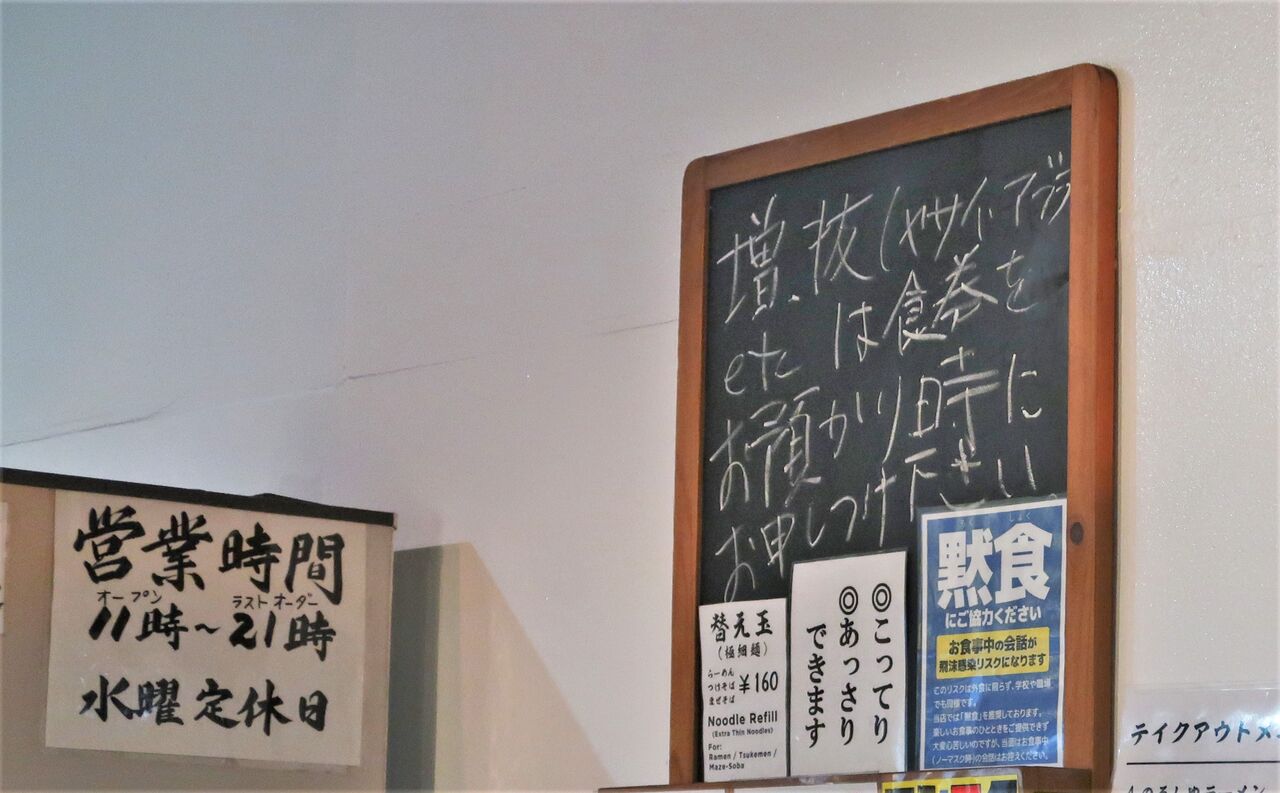 営業時間
オープン ラストオーダー
11時～21時
水曜定休日
増、抜(ヤサイ、アブラ
etc は食券を
お預かり時に
お申しつけ下さい
替え玉
(極細麺)
らーめん
つけそば
まぜそば
¥160
Noodle Refill
(Extra Thin Noodles)
For:
Ramen / Tsukemen /
Maze-Soba
◎こってり
◎あっさり
できます
もく しょく
黙食
にご協力ください
お食事中の会話が
飛沫感染リスクになります
このリスクは外食に限らず、学校や職場
でも同様です。
当店では「黙食」を推奨しております。
楽しいお食事のひとときをご提供できず
大変心苦しいのですが、当面はお食事中
(ノーマスク時)の会話はお控えください。
テイクアウトメ